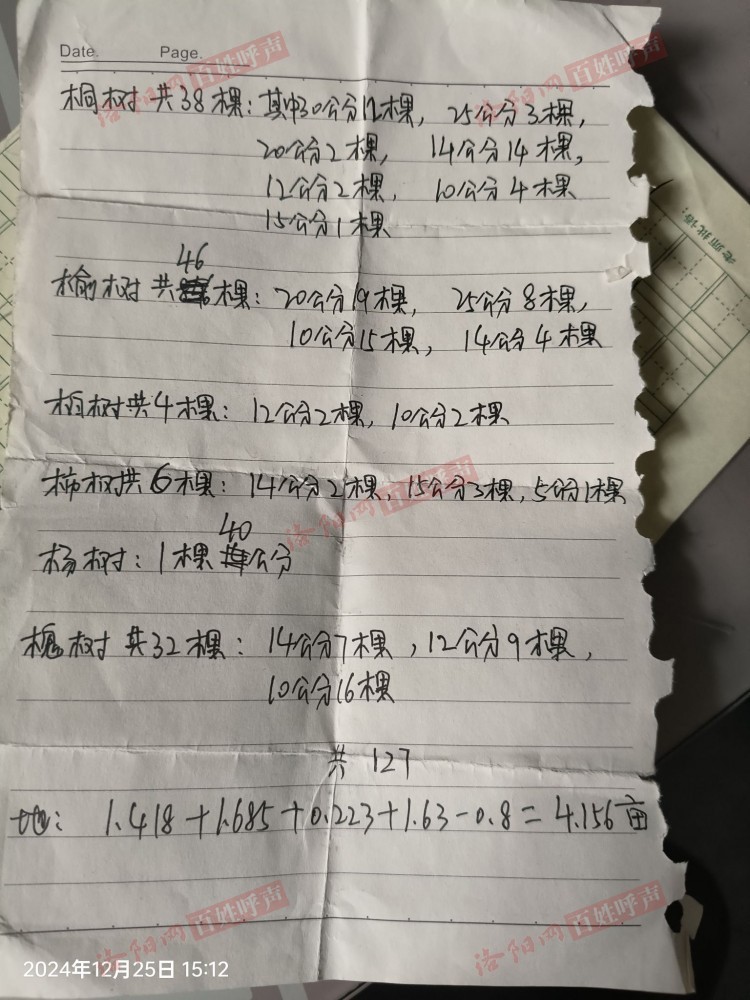 Date. Page.
桐树 共38棵：其中30公分12棵，25公分3棵，
20公分2棵，14公分14棵，
12公分2棵，10公分4棵
15公分1棵
46
榆树 共棵：20公分19棵，25公分8棵，
10公分15棵，14公分4棵
柏树共4棵：12公分2棵，10公分2棵
柿树共6棵：14公分2棵，15公分3棵，5公分1棵
40
杨树：1棵公分
槐树 共32棵：14公分7棵，12公分9棵，
10公分16棵
共 127
地：1.418+1.685+0.223+1.63-0.8=4.156亩
老师批语：
洛阳网 百姓呼声
洛阳网 百姓呼声
洛阳网 百姓呼声
洛阳网 百姓呼声
洛阳网 百姓呼声
2024年12月25日 15:12